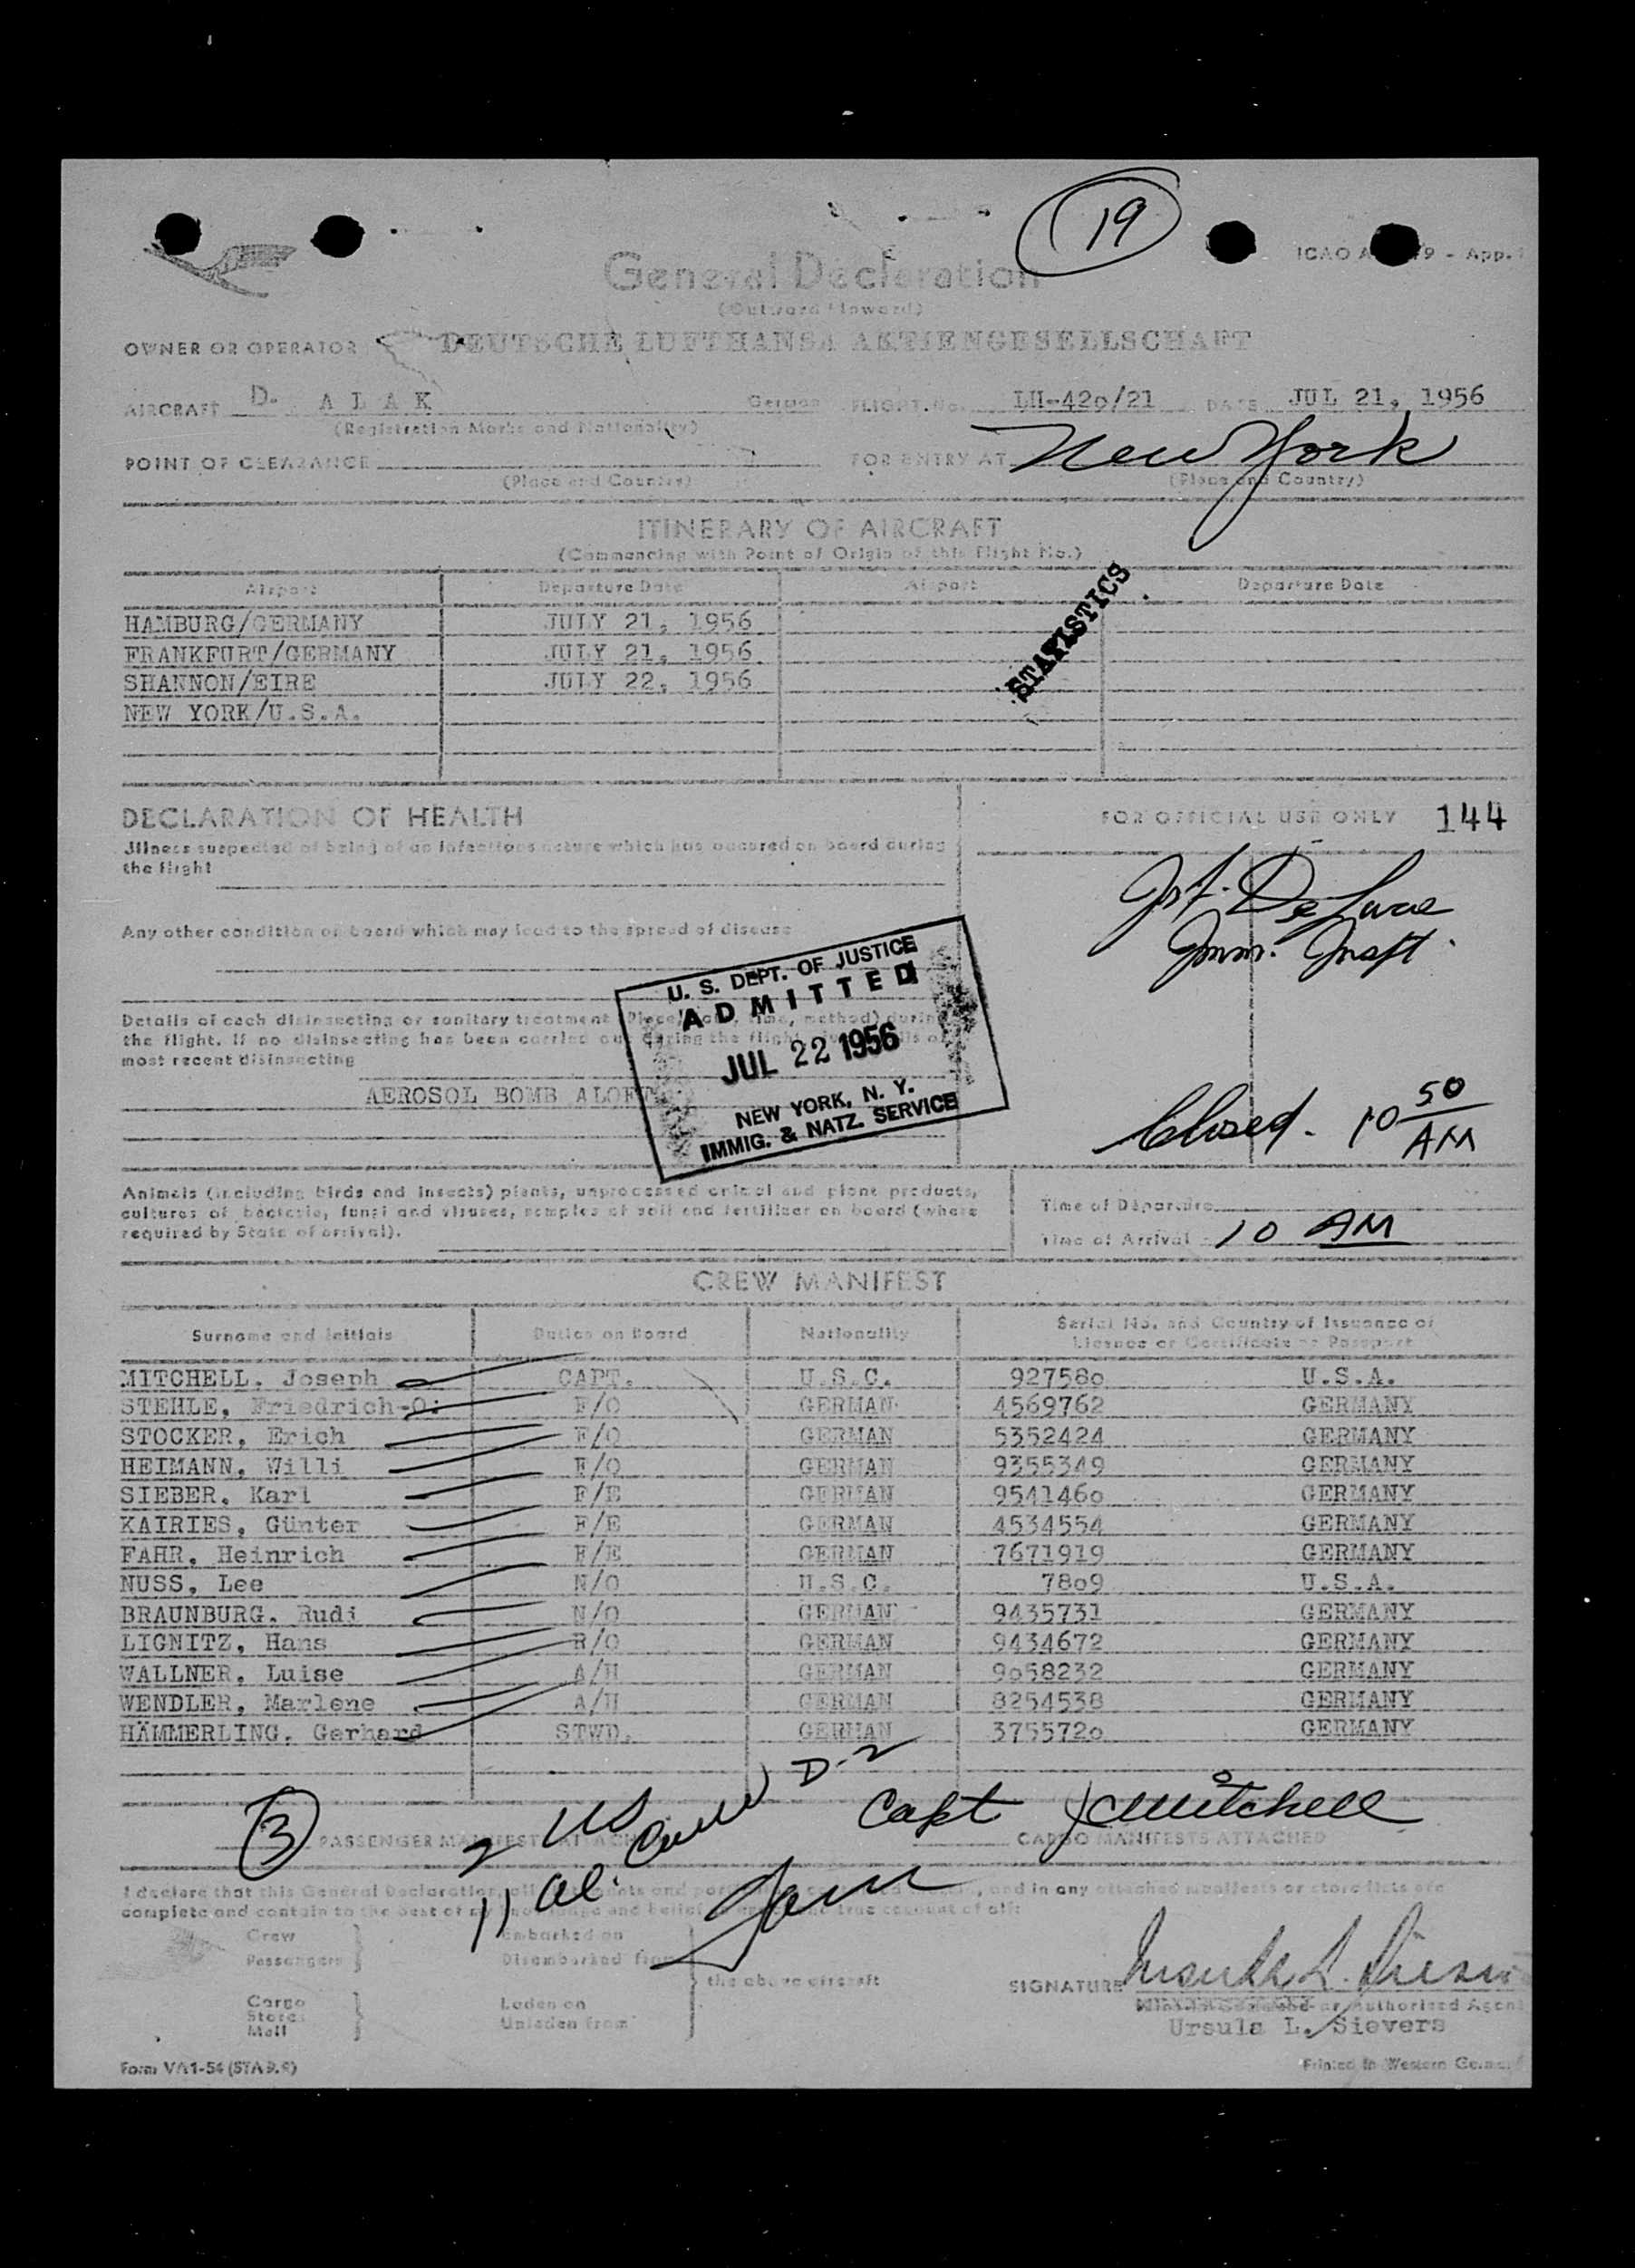 19
ICAO A 9 - App. 1
General Declaration
(Outward / Inward)
OWNER OR OPERATOR DEUTSCHE LUFTHANSA AKTIENGESELLSCHAFT
AIRCRAFT D. A L A K German FLIGHT No. LH-42o/21 DATE JUL 21, 1956
(Registration Marks and Nationality)
POINT OF CLEARANCE FOR ENTRY AT New York
(Place and Country) (Place and Country)
ITINERARY OF AIRCRAFT
(Commencing with Point of Origin of this Flight No.)
Airport Departure Date Airport Departure Date
HAMBURG/GERMANY JULY 21, 1956
FRANKFURT/GERMANY JULY 21, 1956
SHANNON/EIRE JULY 22, 1956
NEW YORK/U.S.A.
STATISTICS
DECLARATION OF HEALTH
Jllness suspected of being of an infectious nature which has occured on board during
the flight
FOR OFFICIAL USE ONLY 144
Imm. Inspt.
Any other condition on board which may lead to the spread of disease
Details of each disinsecting or sanitary treatment (Place, time, method) during
the flight. If no disinsecting has been carried out during the flight
most recent disinsecting
AEROSOL BOMB ALOFT
U. S. DEPT. OF JUSTICE
ADMITTED
JUL 22 1956
NEW YORK, N. Y.
IMMIG. & NATZ. SERVICE
Closed. 10 50 AM
Animals (including birds and insects) plants, unprocessed animal and plant products,
cultures of bacteria, fungi and viruses, samples of soil and fertilizer on board (where
required by State of arrival).
Time of Departure
Time of Arrival 10 AM
CREW MANIFEST
Surname and Initials Duties on Board Nationality Serial No. and Country of Issuance of
Licence or Certificate or Passport
MITCHELL. Joseph CAPT. U.S.C. 92758o U.S.A.
STEHLE, Friedrich-O. F/O GERMAN 4569762 GERMANY
STOCKER, Erich F/O GERMAN 5352424 GERMANY
HEIMANN, Willi F/O GERMAN 9355349 GERMANY
SIEBER, Karl F/E GERMAN 954146o GERMANY
KAIRIES, Günter F/E GERMAN 4534554 GERMANY
FAHR, Heinrich F/E GERMAN 7671919 GERMANY
NUSS, Lee N/O U.S.C. 78o9 U.S.A.
BRAUNBURG. Rudi N/O GERMAN 9435731 GERMANY
LIGNITZ, Hans R/O GERMAN 9434672 GERMANY
WALLNER, Luise A/H GERMAN 9o58232 GERMANY
WENDLER, Marlene A/H GERMAN 8254538 GERMANY
HÄMMERLING. Gerhard STWD. GERMAN 375572o GERMANY
3 PASSENGER MANIFESTS ATTACHED CARGO MANIFESTS ATTACHED
2 US
11 al. Crew D-2
Capt Mitchell
I declare that this General Declaration, and in any attached manifests or store lists are
complete and contain to the best of my knowledge and belief true account of all:
Crew Embarked on
Passengers Disembarked from
the above aircraft
Cargo Laden on
Stores Unladen from
Mail
SIGNATURE
or Authorized Agent
Ursula L. Sievers
Form VA1-54 (STAB.4)
Printed in Western